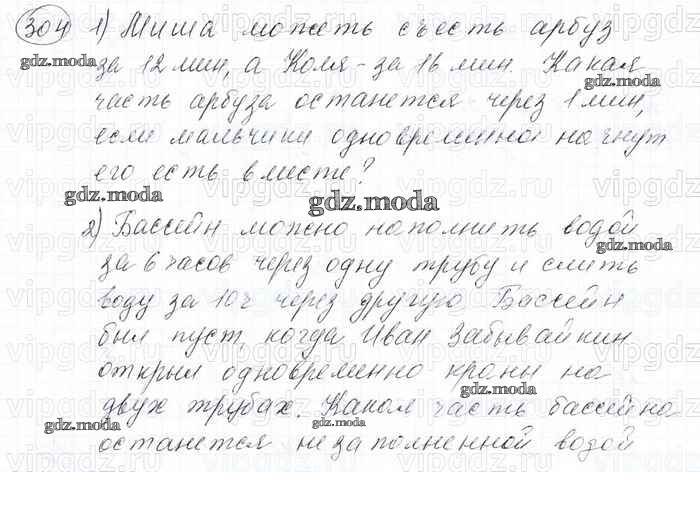 304 1) Миша может съесть арбуз
gdz.moda
за 12 мин, а Коля - за 16 мин. Какая
gdz.moda
часть арбуза останется через 1 мин,
если мальчики одновременно начнут
его есть вместе?
gdz.moda
gdz.moda
2) Бассейн можно наполнить водой
gdz.moda
за 6 часов через одну трубу и слить
воду за 10 ч через другую. Бассейн
был пуст, когда Иван Забывайкин
открыл одновременно краны на
gdz.moda
двух трубах. Какая часть бассейна
gdz.moda
останется незаполненной водой